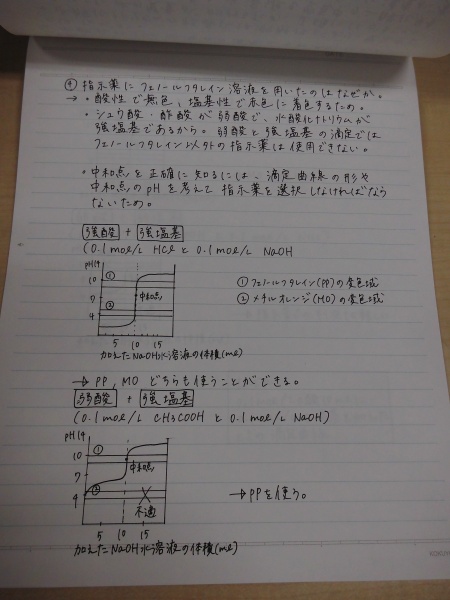 ④ 指示薬にフェノールフタレイン溶液を用いたのはなぜか。
→・酸性で無色、塩基性で赤色に着色するため。
・シュウ酸・酢酸が弱酸で、水酸化ナトリウムが
強塩基であるから。弱酸と強塩基の滴定では
フェノールフタレイン以外の指示薬は使用できない。
・中和点を正確に知るには、滴定曲線の形や
中和点のpHを考えて指示薬を選択しなければなら
ないため。
強酸 + 強塩基
(0.1mol/L HClと0.1mol/L NaOH
pH14
10
7
4
①
中和点
②
5 10 15
加えたNaOH水溶液の体積(ml)
①フェノールフタレイン(PP)の変色域
②メチルオレンジ(MO)の変色域
→PP, MO どちらも使うことができる。
弱酸 + 強塩基
(0.1mol/L CH3COOHと0.1mol/L NaOH)
pH14
10
7
4
①
中和点
②
不適
5 10 15
加えたNaOH水溶液の体積(ml)
→PPを使う。